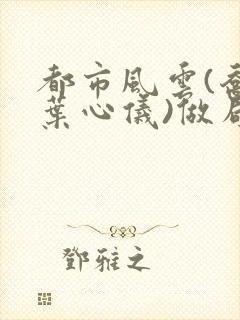 都市風雲(喬
葉心儀)做局
鄧雅之